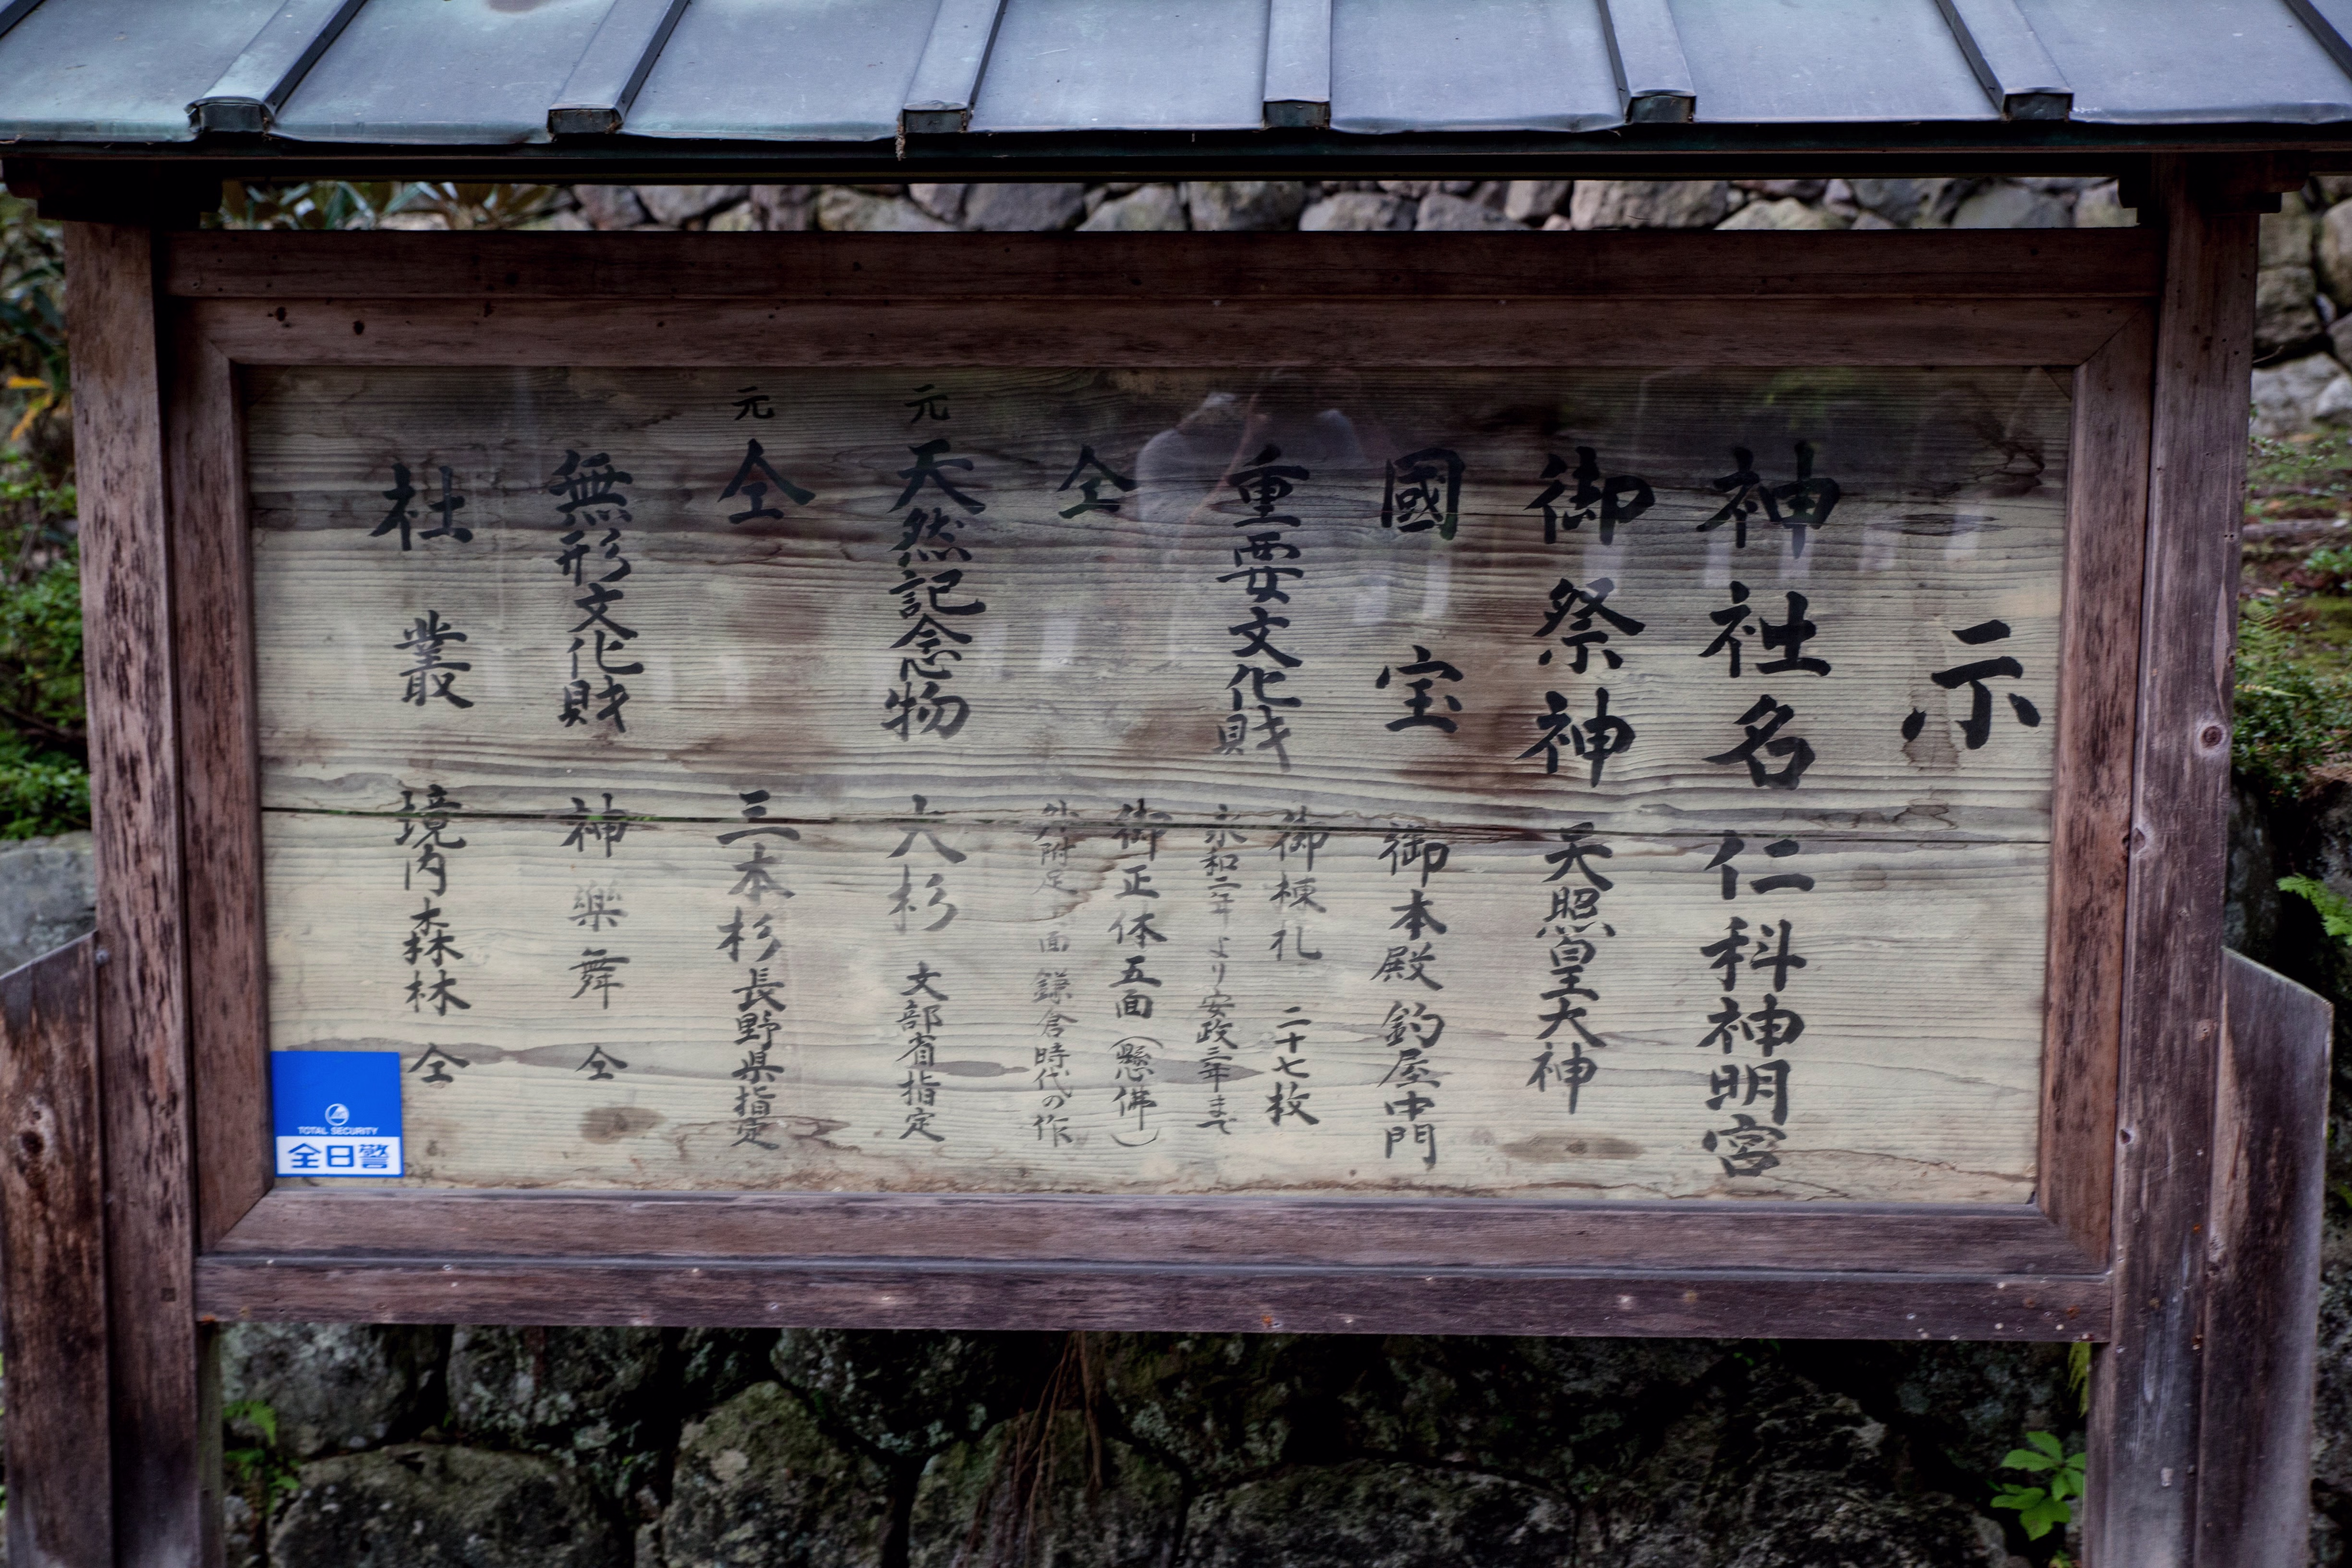 示
神社名 仁科神明宮
御祭神 天照皇大神
國宝 御本殿 釣屋 中門
重要文化財 御棟札 二十七枚
永和二年より安政三年まで
仝 御正体五面(懸佛)
外附定 面 鎌倉時代の作
元 天然記念物 大杉 文部省指定
元 仝 三本杉 長野県指定
無形文化財 神樂舞 仝
社叢 境内森林 仝
TOTAL SECURITY
全日警